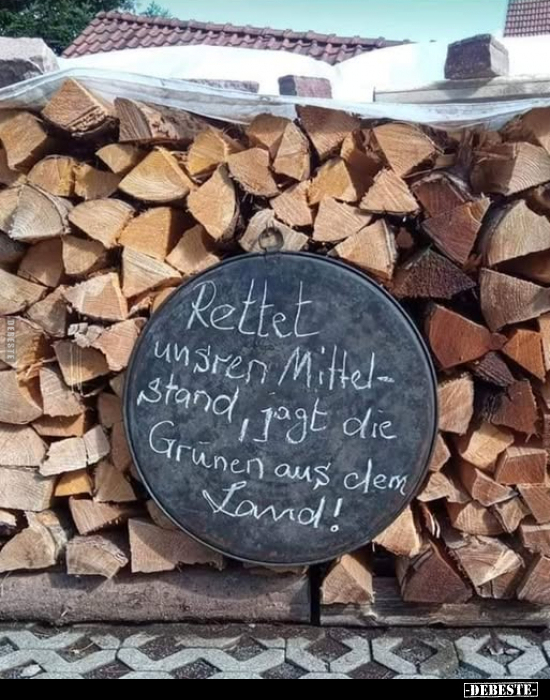 Rettet
unsren Mittel-
stand, jagt die
Grünen aus dem
Land!
DEBESTE
-DEBESTE-